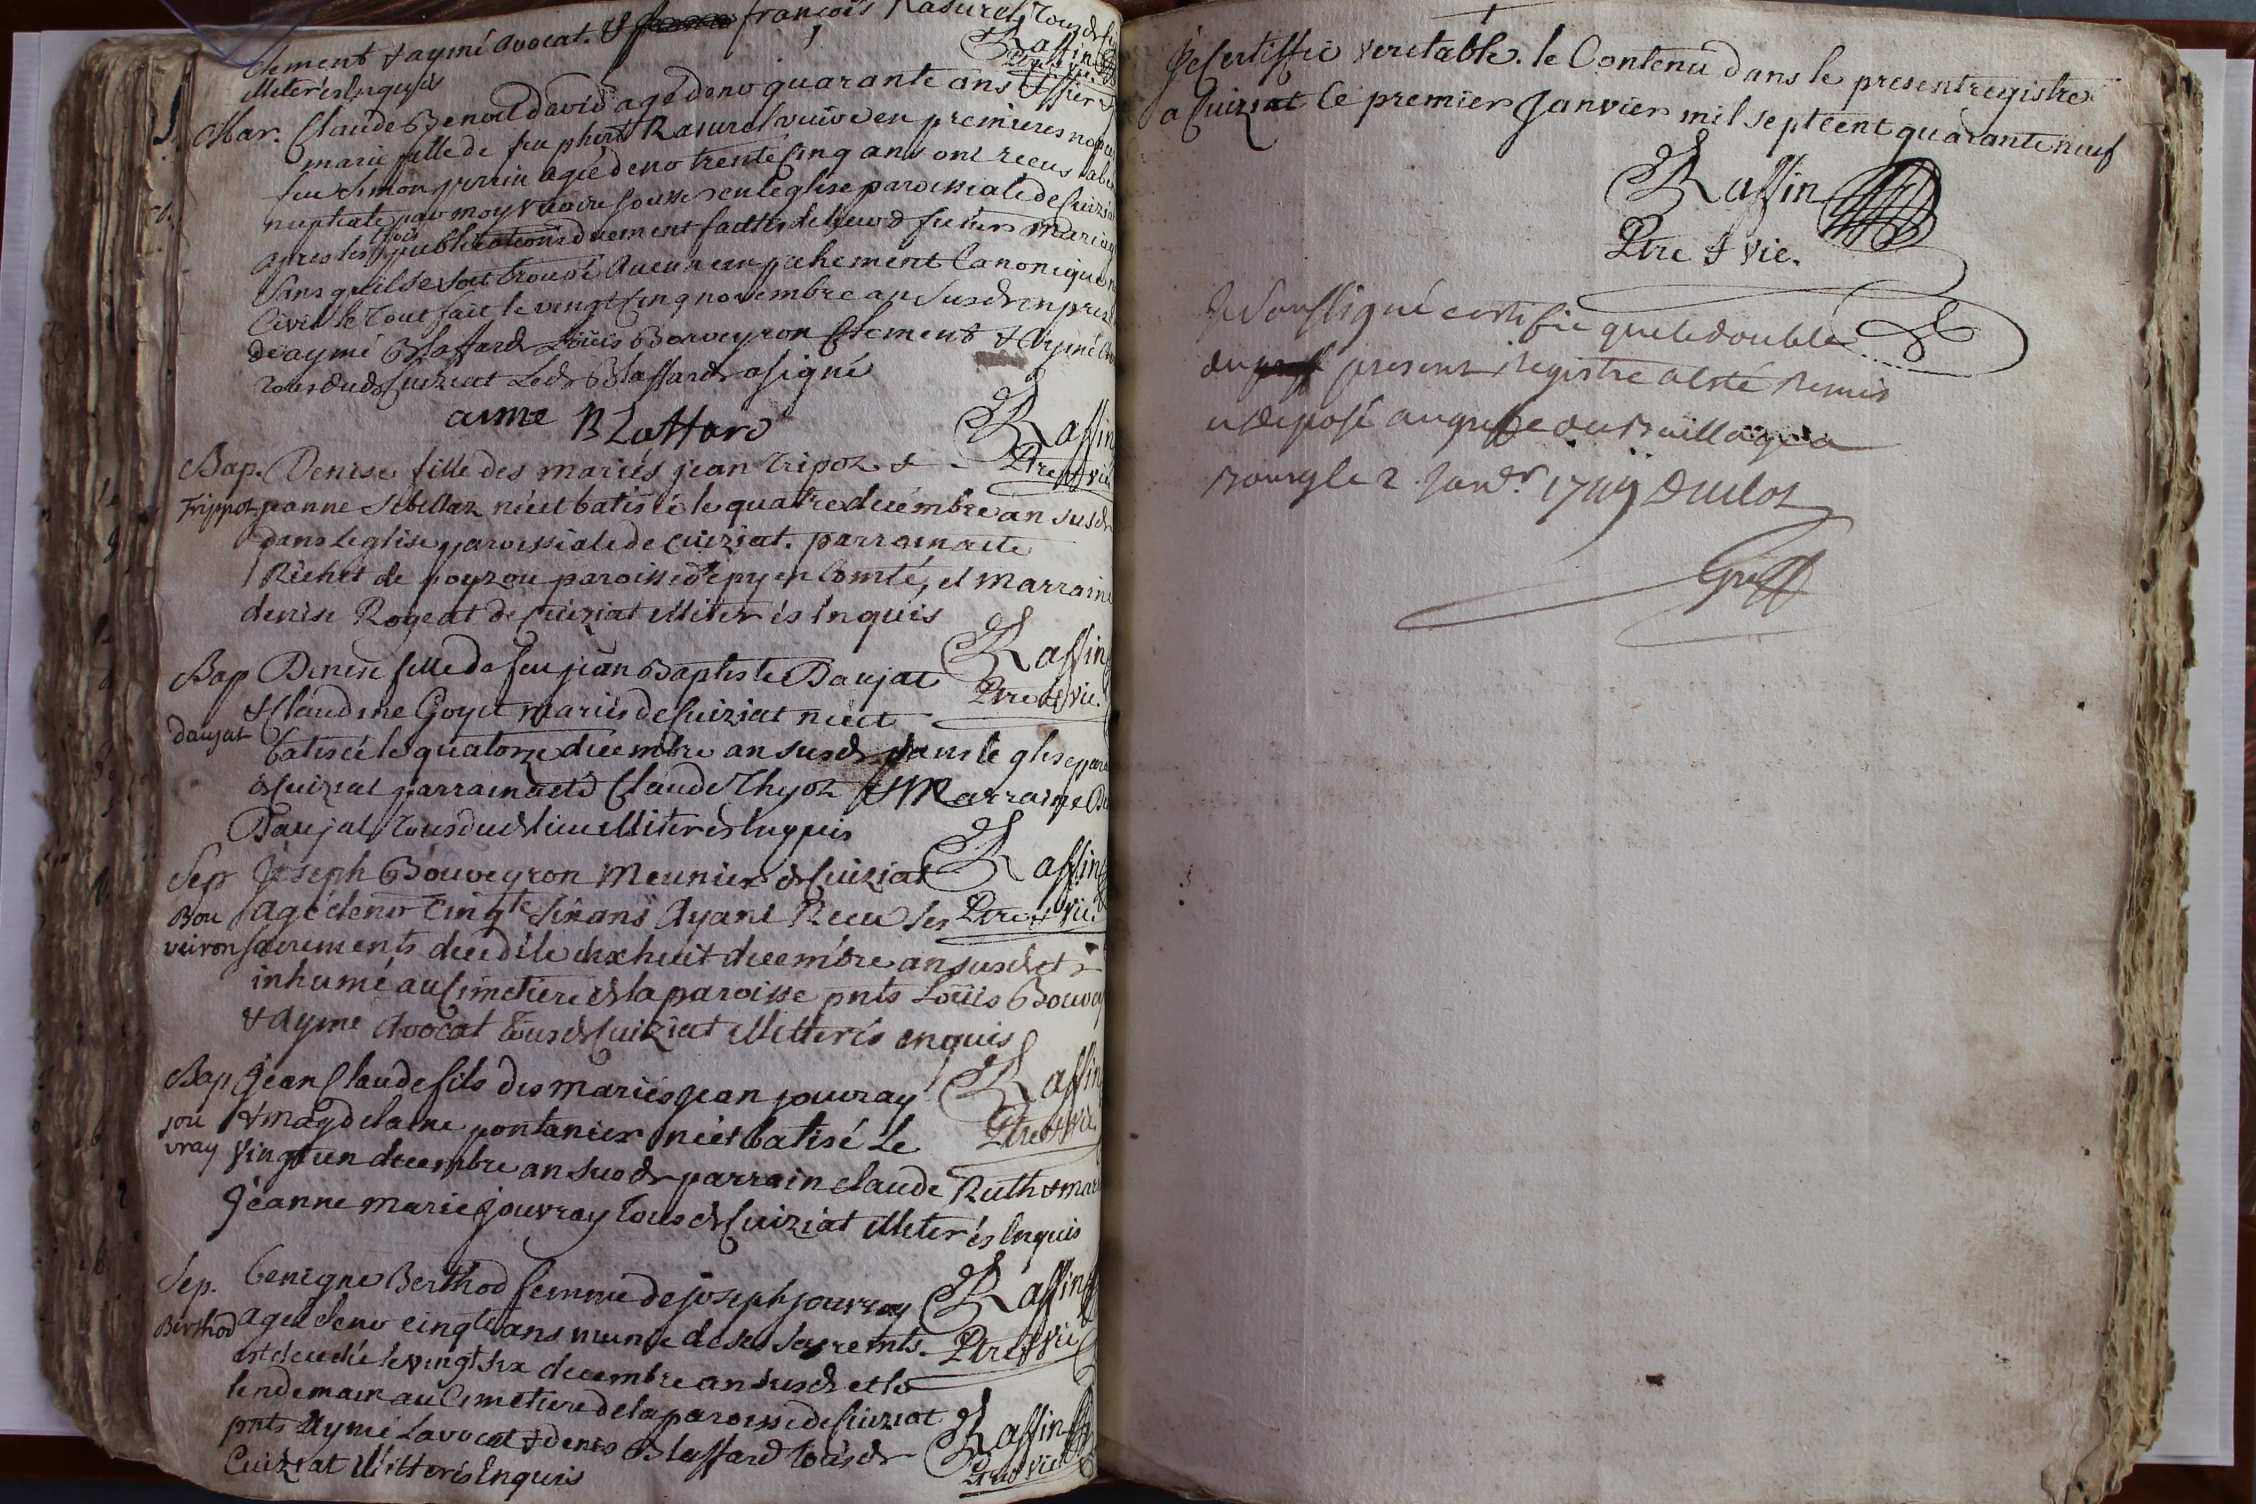 Clement & aymé avocat. & françois Rasurel, tous de
illiterés Enquis
Raffin
Ptre & Vic.
Mar. Claude Benoit david agé denv quarante ans & 
marie fille de feu phert Rasurel vuive en premieres nopces
feu Simon perrin agée denv trente Cinq ans ont receus la
nuptiale par moy vicaire soussé en l'eglise paroissiale de Cuiziat
apres les publications duement faittes de leurd futur mariage
fois
sans qu'il se soit trouvé aucun empechement Canonique
Civil le tout fait le vingt Cinq novembre an susd en
de aymé Blaffard Loüis Bouveyron Clement & Aymé
tous dud Cuiziat Led Blaffard a signé
aime Blaffard
Raffin
Ptre & Vic
Bap. Denise fille des mariés jean Tripoz &
Trippoz jeanne Sibellaz né et batisé le quatre decémbre an susd
dans Leglise paroissiale de Cuiziat. parrain a eté
Richet de poyzou paroisse d'epy en Comté, et marraine
denise Rogeat de Cuiziat illiterés Enquis
Raffin
Ptre & Vic.
Bap Denise fille de feu jean Baptiste Daujat
& Claudine Goyet mariés de Cuiziat né et
daujat
batisée le quatorze decembre an susd dans leglise
de Cuiziat parrain a eté Claude Thyoz & Marraine
Daujat, tous dud lieu illiterés Enquis
Raffin
Ptre & Vic.
Sep Joseph Bouveyron Meunier de Cuiziat
Bou agé denv Cinqte Six ans Ayant Recu ses
veiron sacrements decedé le dix huit decembre an susd et
inhumé au Cimetiere de la paroisse pnts Loüis
& Ayme Avocat tous de Cuiziat illitterés enquis
Raffin
Ptre & Vic.
Bap jean Claude fils des mariés jean jouvray
jou & magdelaine pontanier né et batisé Le
vray Vingt un decembre an susd parrain claude Ruth &
Jeanne marie jouvray tous de Cuiziat illiterés Enquis
Raffin
Ptre & Vic
Sep. benigne Berthod femme de joseph jouvray
Berthod agée denv cinqte ans munie de ses sacremts
est decedée le vingt six decembre an susd et le
lendemain au Cimetiere de la paroisse de Cuiziat
pnts Aymé Lavocat & denis Blaffard tous de
Cuiziat illitterés Enquis
Raffin
Ptre & Vic
Je Certiffie veritable. le Contenu dans le present registre
a Cuiziat Ce premier Janvier mil sept cent quarante neuf
Raffin
Ptre & Vic.
Je Soussigné certifie que le double
du present Registre a esté Remis
et deposé au greffe du Bailliage a
Bourg le 2 Janer 1749 Duclos
Greff